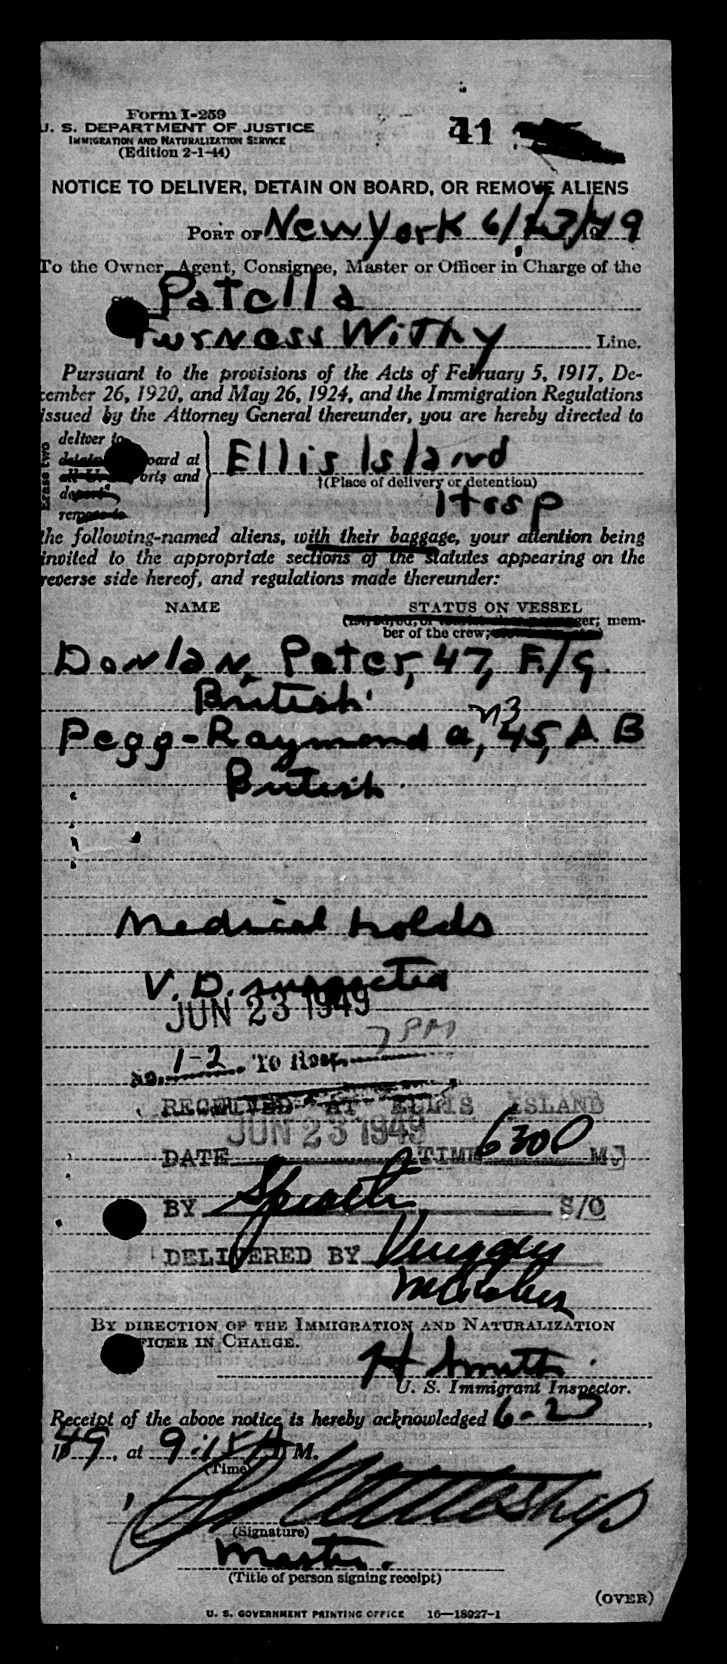 Form I-259
U. S. DEPARTMENT OF JUSTICE
IMMIGRATION AND NATURALIZATION SERVICE
(Edition 2-1-44)
41
NOTICE TO DELIVER, DETAIN ON BOARD, OR REMOVE ALIENS
PORT OF New York 6/23/49
To the Owner, Agent, Consignee, Master or Officer in Charge of the
Patella
Furness Withy Line.
Pursuant to the provisions of the Acts of February 5, 1917, De-
cember 26, 1920, and May 26, 1924, and the Immigration Regulations
issued by the Attorney General thereunder, you are hereby directed to
Erase two
deliver to
board at
ports and
Ellis Island
†(Place of delivery or detention)
Hosp
the following-named aliens, with their baggage, your attention being
invited to the appropriate sections of the statutes appearing on the
reverse side hereof, and regulations made thereunder:
NAME STATUS ON VESSEL
mem-
ber of the crew;
Donlan, Peter, 47, F/G.
British
Pegg-Raymond a, 45, A B
British
Medical holds
V. D. suspected
JUN 23 1949
7 PM
No. 1-2 To Hosp.
RECEIVED AT ELLIS ISLAND
JUN 23 1949
DATE TIME 6300 M
BY S/O
DELIVERED BY
BY DIRECTION OF THE IMMIGRATION AND NATURALIZATION
OFFICER IN CHARGE.
H Smith
U. S. Immigrant Inspector.
Receipt of the above notice is hereby acknowledged 6-23,
1949, at 9:15 A M.
(Time)
(Signature)
Master.
(Title of person signing receipt)
(OVER)
U. S. GOVERNMENT PRINTING OFFICE 16—18927-1